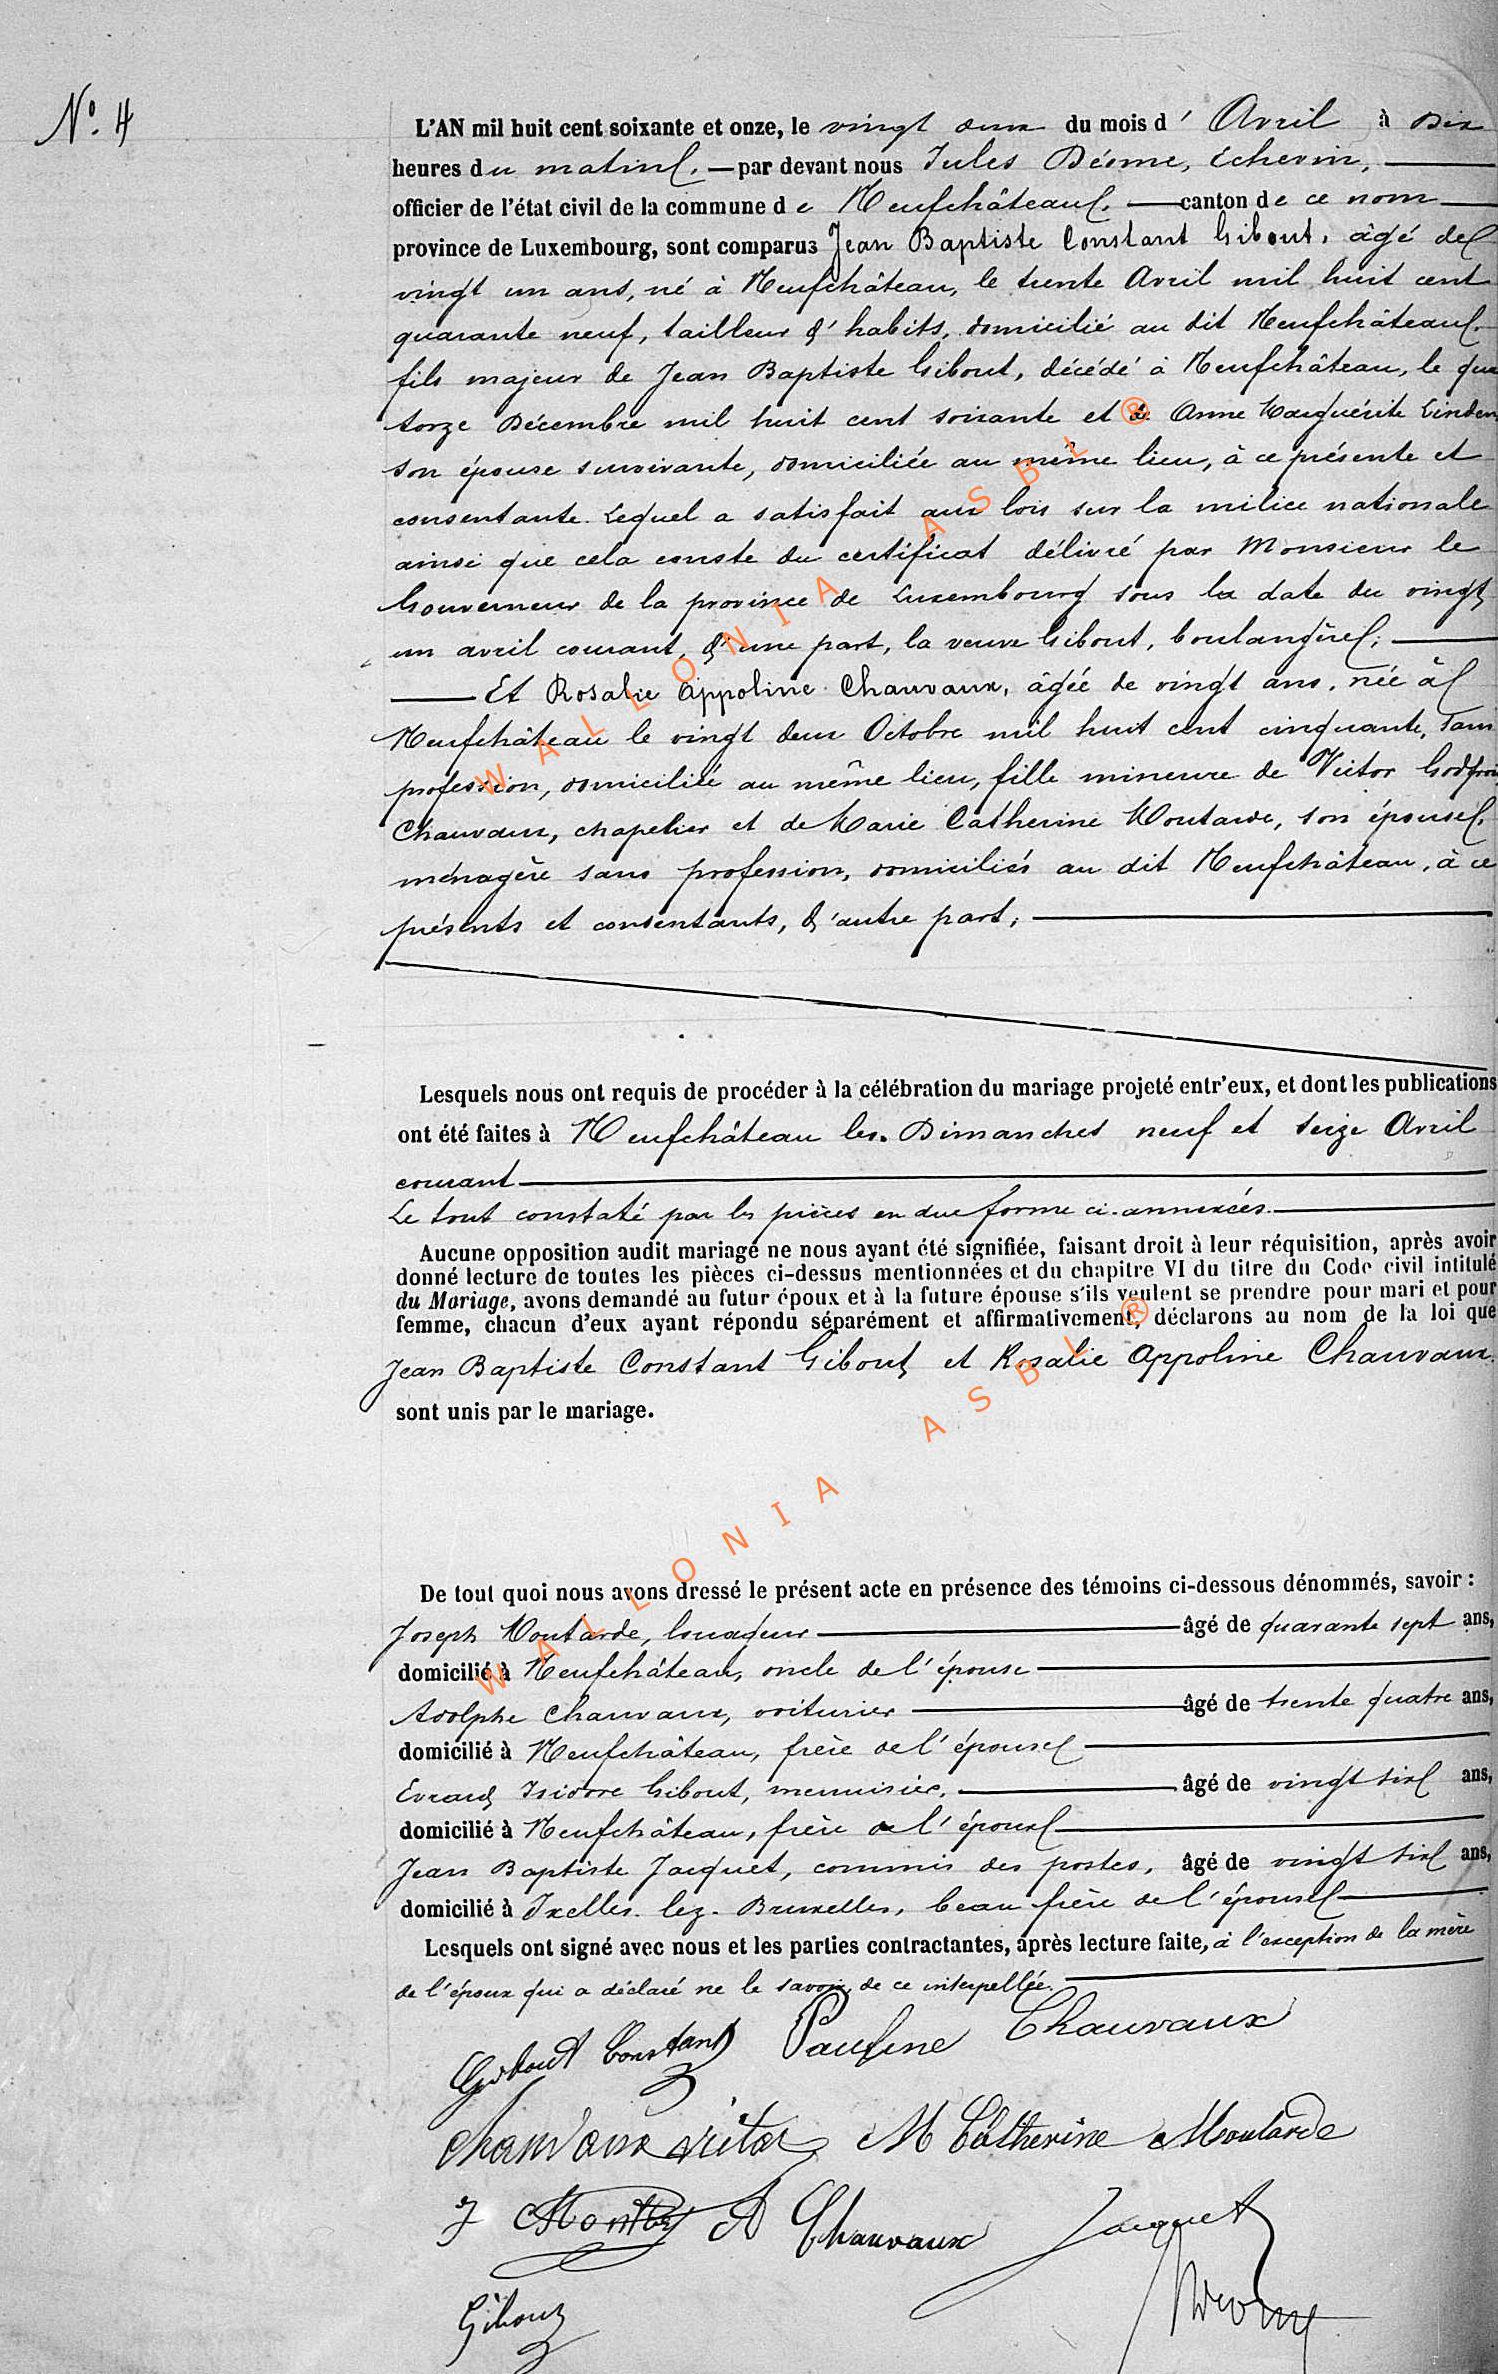 N° 4
L'AN mil huit cent soixante et onze, le vingt deux du mois d' Avril à Dix
heures du matin. — par devant nous Jules Déome, Echevin,
officier de l'état civil de la commune de Neufchâteau. — canton de ce nom
province de Luxembourg, sont comparus Jean Baptiste Constant Gibout, âgé de
vingt un ans, né à Neufchâteau, le trente Avril mil huit cent
quarante neuf, tailleur d'habits, domicilié au dit Neufchâteau,
fils majeur de Jean Baptiste Gibout, décédé à Neufchâteau, le qua
torze Décembre mil huit cent soixante et de Anne Marguérite Linden,
son épouse survivante, domiciliée au même lieu, à ce présente et
consentante. Lequel a satisfait aux lois sur la milice nationale
ainsi que cela conste du certificat délivré par Monsieur le
Gouverneur de la province de Luxembourg sous la date du vingt
un avril courant, d'une part, la veuve Gibout, boulangère;
Et Rosalie Appoline Chauvaux, âgée de vingt ans, née à
Neufchâteau le vingt deux Octobre mil huit cent cinquante, sans
profession, domiciliée au même lieu, fille mineure de Victor Godfroi
Chauvaux, chapelier et de Marie Catherine Moutarde, son épouse,
ménagère sans profession, domiciliés au dit Neufchâteau, à ce
présents et consentants, d'autre part,
Lesquels nous ont requis de procéder à la célébration du mariage projeté entr'eux, et dont les publications
ont été faites à Neufchâteau les Dimanches neuf et seize Avril
courant
Le tout constaté par les pièces en due forme ci-annexées.
Aucune opposition audit mariage ne nous ayant été signifiée, faisant droit à leur réquisition, après avoir
donné lecture de toutes les pièces ci-dessus mentionnées et du chapitre VI du titre du Code civil intitulé
du Mariage, avons demandé au futur époux et à la future épouse s'ils veulent se prendre pour mari et pour
femme, chacun d'eux ayant répondu séparément et affirmativement, déclarons au nom de la loi que
Jean Baptiste Constant Gibout et Rosalie Appoline Chauvaux
sont unis par le mariage.
De tout quoi nous avons dressé le présent acte en présence des témoins ci-dessous dénommés, savoir :
Joseph Moutarde, âgé de quarante sept ans,
domicilié à Neufchâteau, oncle de l'épouse
Adolphe Chauvaux, voiturier âgé de trente quatre ans,
domicilié à Neufchâteau, frère de l'épouse
Evrard Isidore Gibout, menuisier, âgé de vingt six ans,
domicilié à Neufchâteau, frère de l'époux
Jean Baptiste Jacquet, commis des postes, âgé de vingt six ans,
domicilié à Ixelles-lez-Bruxelles, beau frère de l'épouse
Lesquels ont signé avec nous et les parties contractantes, après lecture faite, à l'exception de la mère
de l'époux qui a déclaré ne le savoir de ce interpellée.
Gibout Constant Pauline Chauvaux
Chauvaux Victor M Catherine Moutarde
J A Chauvaux Jacquet
Gibout
WALLONIA ASBL ®
WALLONIA ASBL ®